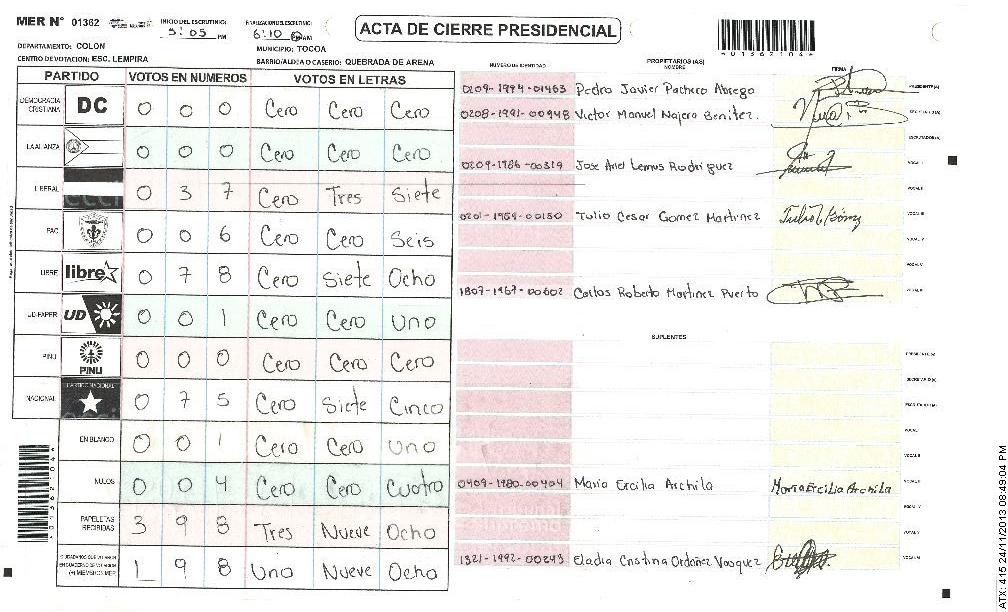 MER N° 01362
INICIO DEL ESCRUTINIO:
5:05 PM
FINALIZACION DEL ESCRUTINIO:
6:10 PM AM
ACTA DE CIERRE PRESIDENCIAL
DEPARTAMENTO: COLON
MUNICIPIO: TOCOA
CENTRO DE VOTACION: ESC. LEMPIRA
BARRIO/ALDEA O CASERIO: QUEBRADA DE ARENA
PARTIDO VOTOS EN NUMEROS VOTOS EN LETRAS
DEMOCRACIA CRISTIANA DC 0 0 0 Cero Cero Cero
LA ALIANZA 0 0 0 Cero Cero Cero
LIBERAL 0 3 7 Cero Tres Siete
PAC 0 0 6 Cero Cero Seis
LIBRE libre 0 7 8 Cero Siete Ocho
UD-FAPER UD 0 0 1 Cero Cero Uno
PINU PINU 0 0 0 Cero Cero Cero
NACIONAL PARTIDO NACIONAL 0 7 5 Cero Siete Cinco
EN BLANCO 0 0 1 Cero Cero Uno
NULOS 0 0 4 Cero Cero Cuatro
PAPELETAS RECIBIDAS 3 9 8 Tres Nueve Ocho
CIUDADANOS QUE VOTARON EN CUADERNO DE VOTACION (+) MIEMBROS MER 1 9 8 Uno Nueve Ocho
NUMERO DE IDENTIDAD
PROPIETARIOS (AS)
NOMBRE
FIRMA
0209-1994-01463 Pedro Javier Pacheco Abrego PRESIDENTE(A)
0208-1991-00948 Victor Manuel Najera Benitez. SECRETARIO(A)
ESCRUTADOR(A)
0209-1986-00319 Jose Ariel Lemus Rodriguez VOCAL I
VOCAL II
0201-1964-00150 Tulio Cesar Gomez Martinez VOCAL III
VOCAL IV
VOCAL V
1807-1967-00602 Carlos Roberto Martinez Puerto
SUPLENTES
PRESIDENTE(A)
SECRETARIO(A)
ESCRUTADOR(A)
VOCAL I
VOCAL II
0409-1980-00404 Maria Ercilia Archila Maria Ercilia Archila
VOCAL IV
VOCAL V
1321-1992-00243 Eladia Cristina Ordoñez Vasquez
ATX: 415 24/11/2013 08:49:04 PM